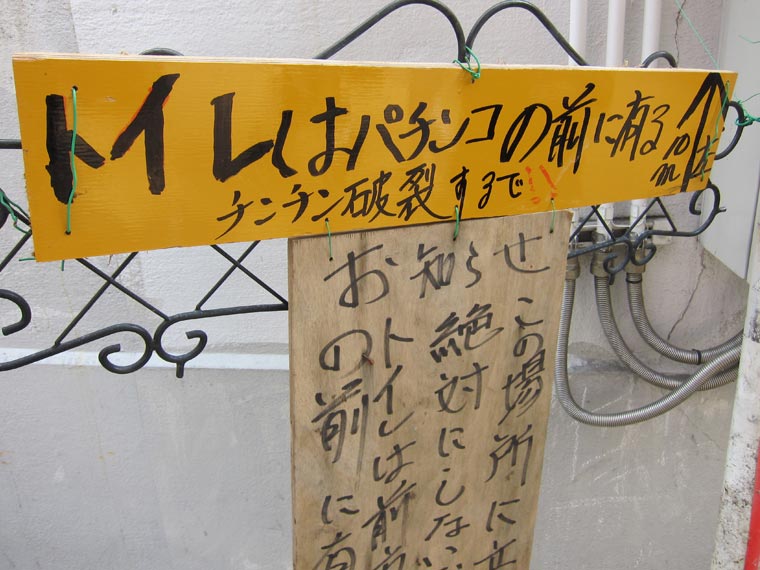 トイレは パチンコの前に有る 10m↑
チンチン破裂するで!!
お知らせ
この場所に
絶対にしない
トイレは前
の前に有